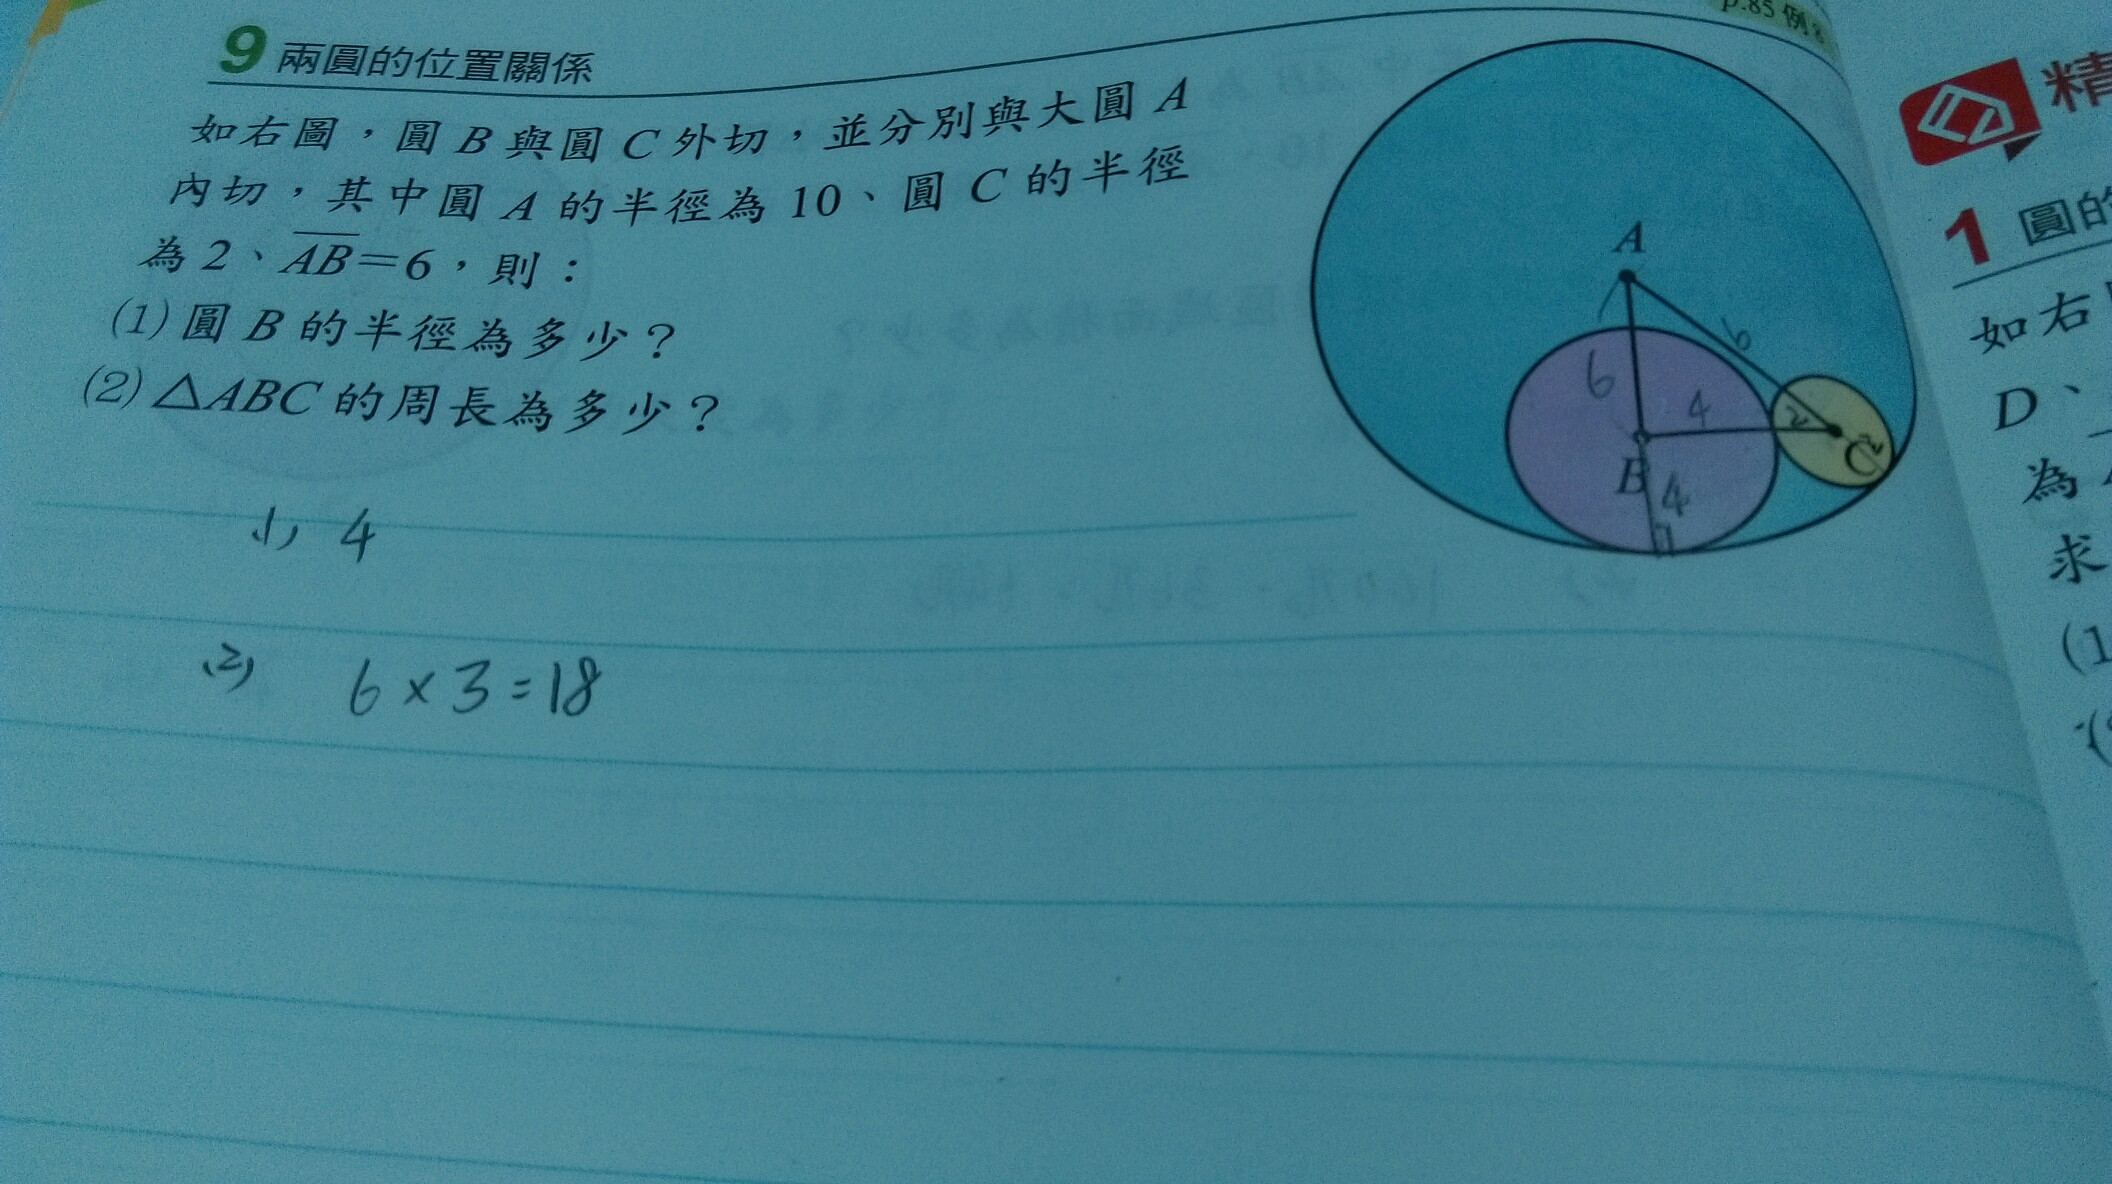 p.85 例
9 兩圓的位置關係
如右圖，圓 B 與圓 C 外切，並分別與大圓 A
內切，其中圓 A 的半徑為 10、圓 C 的半徑
為 2、AB=6，則：
(1) 圓 B 的半徑為多少？
(2) △ABC 的周長為多少？
A
6
6
4
2
B
C
2
4
(1) 4
(2) 6×3=18
精
1 圓的
如右
D、
為
求
(1